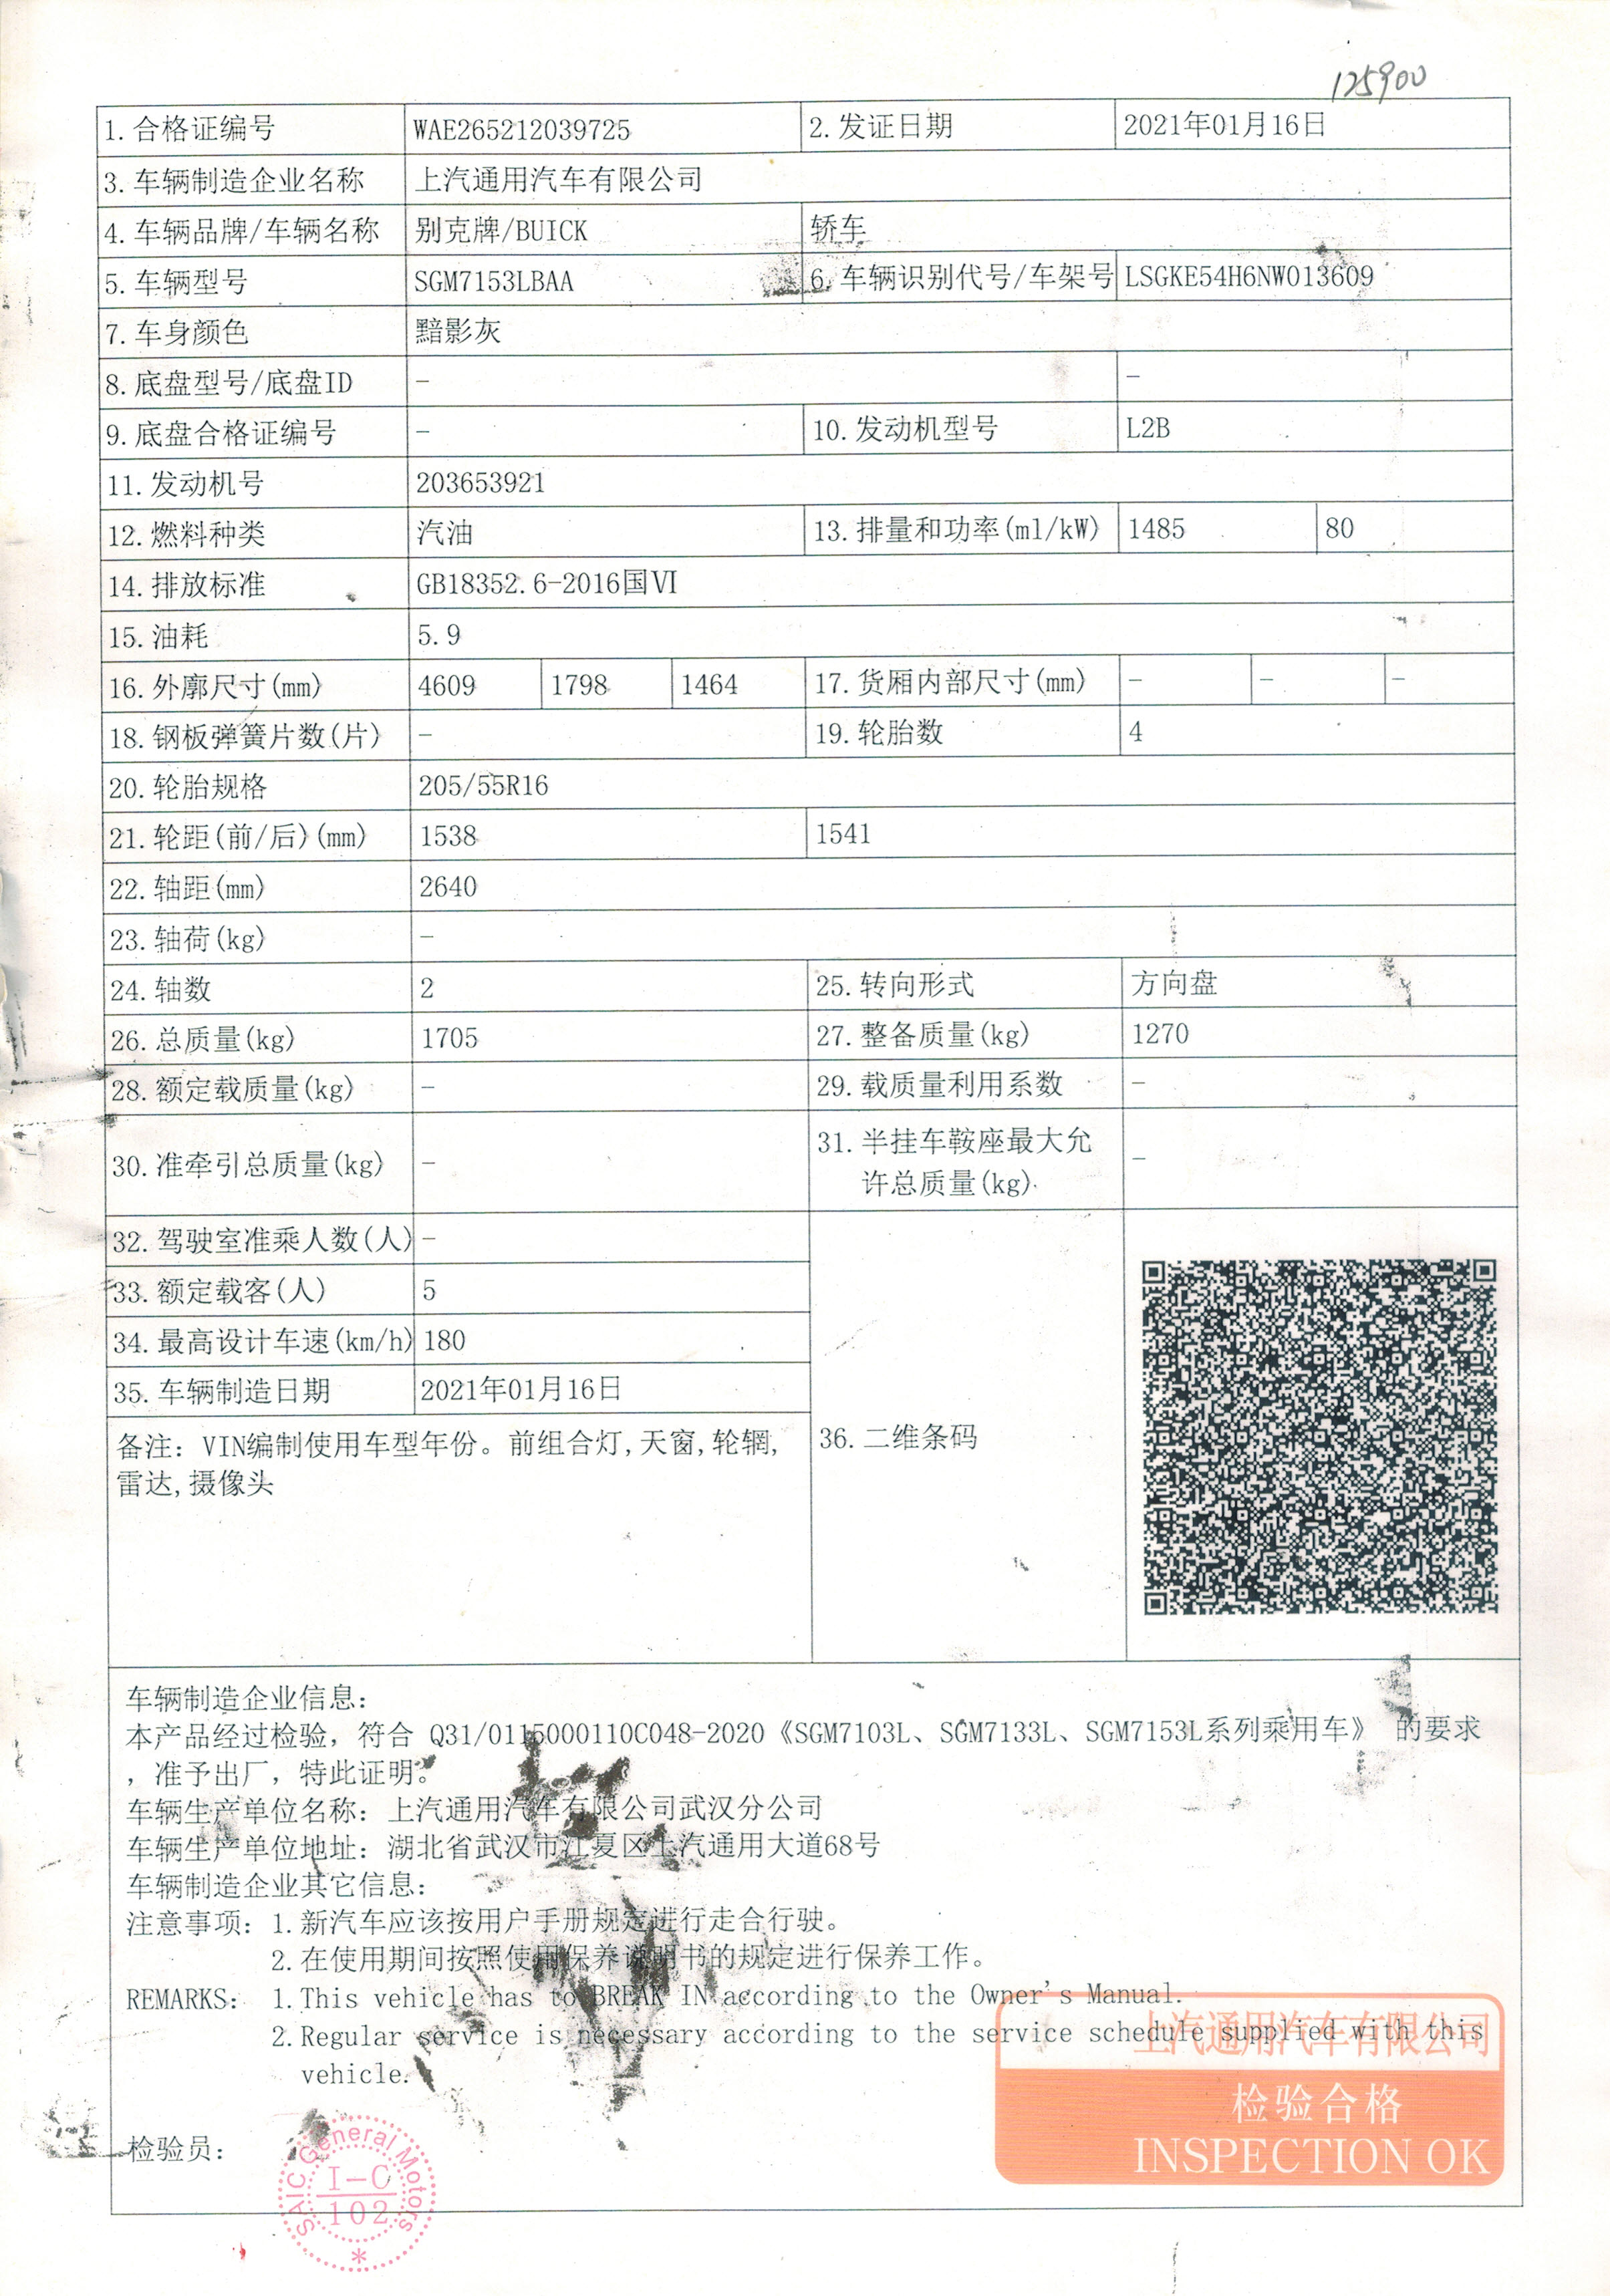 125900
1.合格证编号 WAE265212039725 2.发证日期 2021年01月16日
3.车辆制造企业名称 上汽通用汽车有限公司
4.车辆品牌/车辆名称 别克牌/BUICK 轿车
5.车辆型号 SGM7153LBAA 6.车辆识别代号/车架号 LSGKE54H6NW013609
7.车身颜色 黯影灰
8.底盘型号/底盘ID - -
9.底盘合格证编号 - 10.发动机型号 L2B
11.发动机号 203653921
12.燃料种类 汽油 13.排量和功率(ml/kW) 1485 80
14.排放标准 GB18352.6-2016国Ⅵ
15.油耗 5.9
16.外廓尺寸(mm) 4609 1798 1464 17.货厢内部尺寸(mm) - - -
18.钢板弹簧片数(片) - 19.轮胎数 4
20.轮胎规格 205/55R16
21.轮距(前/后)(mm) 1538 1541
22.轴距(mm) 2640
23.轴荷(kg) -
24.轴数 2 25.转向形式 方向盘
26.总质量(kg) 1705 27.整备质量(kg) 1270
28.额定载质量(kg) - 29.载质量利用系数 -
30.准牵引总质量(kg) - 31.半挂车鞍座最大允
许总质量(kg) -
32.驾驶室准乘人数(人) -
33.额定载客(人) 5
34.最高设计车速(km/h) 180
35.车辆制造日期 2021年01月16日
备注：VIN编制使用车型年份。前组合灯,天窗,轮辋,
雷达,摄像头
36.二维条码
车辆制造企业信息：
本产品经过检验，符合 Q31/0115000110C048-2020《SGM7103L、SGM7133L、SGM7153L系列乘用车》 的要求
，准予出厂，特此证明。
车辆生产单位名称：上汽通用汽车有限公司武汉分公司
车辆生产单位地址：湖北省武汉市江夏区上汽通用大道68号
车辆制造企业其它信息：
注意事项：1.新汽车应该按用户手册规定进行走合行驶。
2.在使用期间按照使用保养说明书的规定进行保养工作。
REMARKS: 1.This vehicle has to BREAK IN according to the Owner's Manual.
2.Regular service is necessary according to the service schedule supplied with this
vehicle.
上汽通用汽车有限公司
检验合格
INSPECTION OK
检验员：
SAIC General Motors
I-C
102